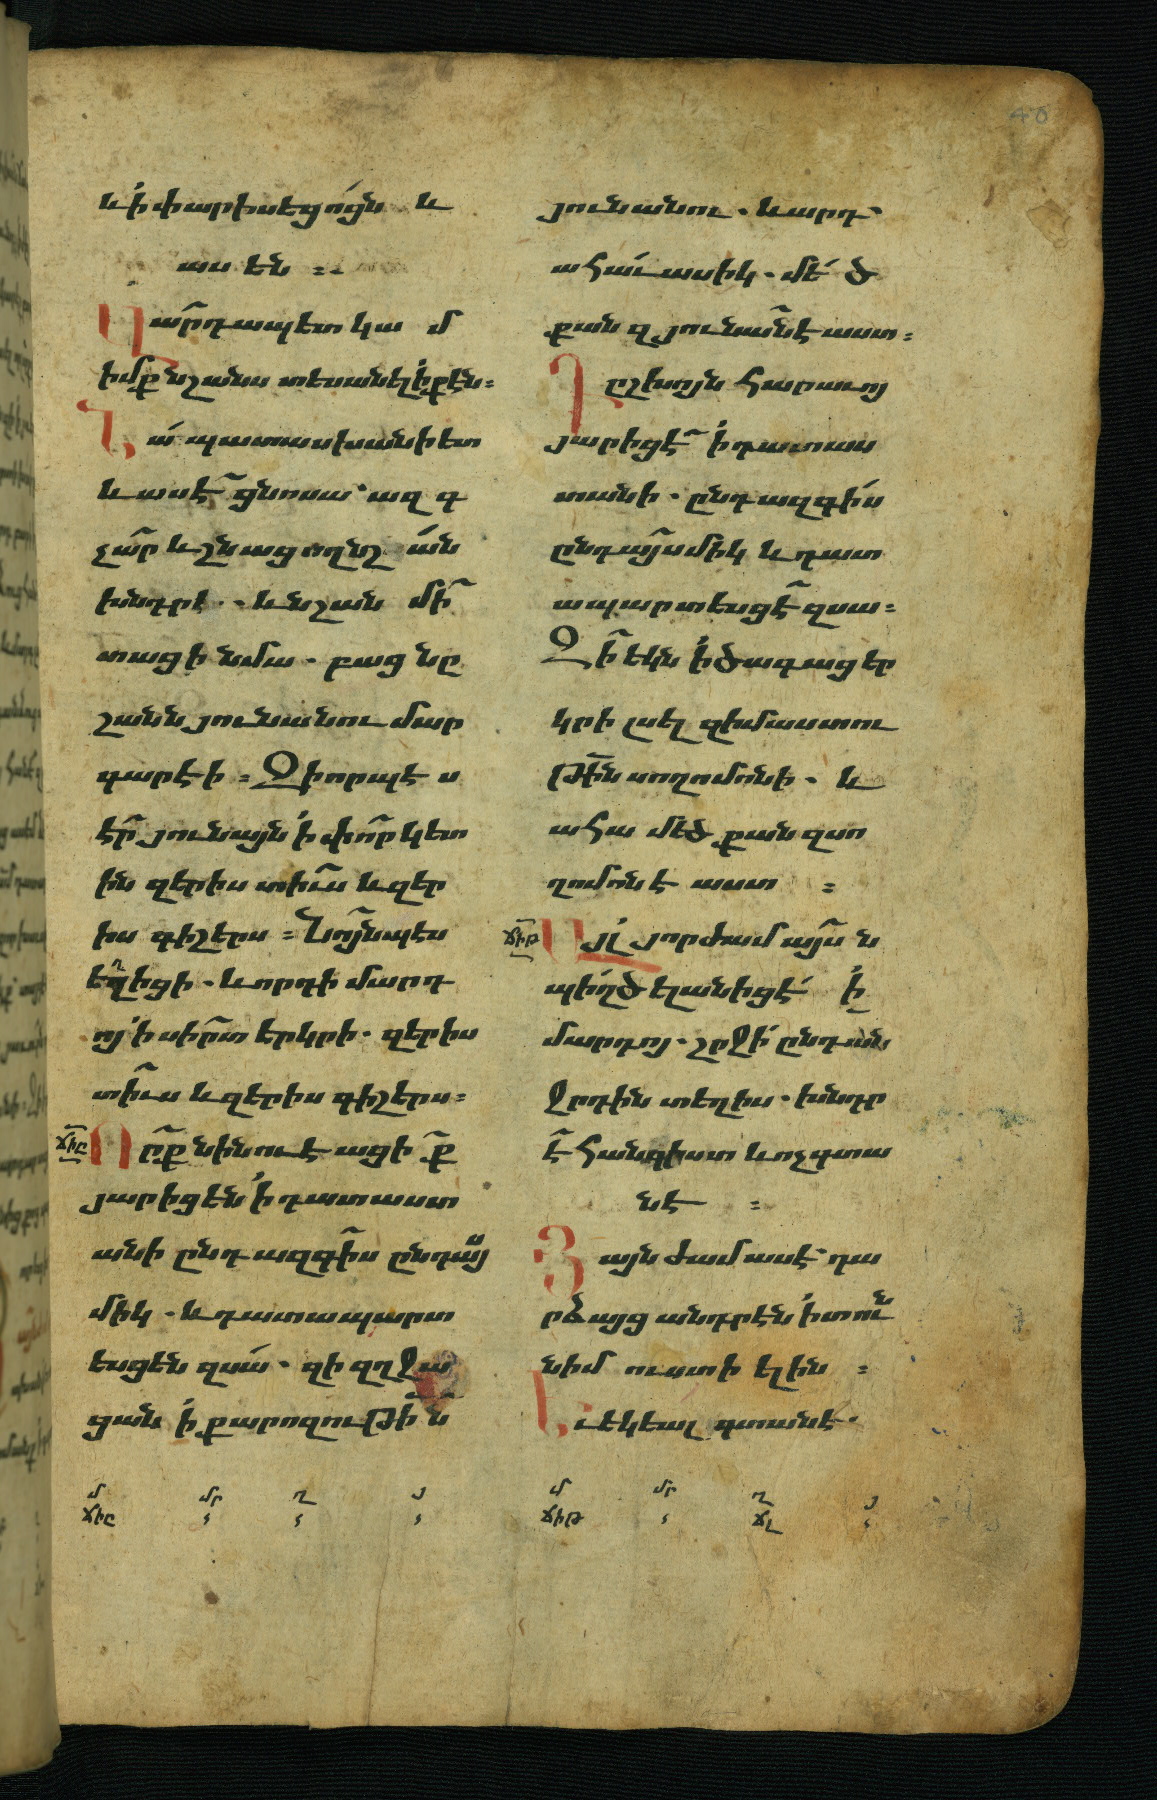 48
և ի փարիսեցոցն և
ասեն :
Վարդապետ կամ
իմք նշանս տեսանել ի քէն :
Նա պատասխանի ետ
և ասէ ցնոսա . ազգ
չար և շնացող նշան
խնդրէ . և նշան մի
տացի նմա . բաց նը
շանն յունանու մար
գարէի : Զի որպէս
էր յունայն ի փոր կետ
ին զերիս տիւս և զեր
իս գիշերս : Նոյնպէս
եղիցի . և որդի մարդ
ոյ ի սիրտ երկրի . զերիս
տիւս և զերիս գիշերս :
ճիը
Արք նինուէացիք
յարիցեն ի դատաստ
անի ընդ ազգիս ընդ այս
միկ . և դատապարտ
եսցեն զսա . զի զղջա
ցան ի քարոզութին
յունանու . և արդ
ահաւասիկ . մեծ
քան զյունան է աստ :
Դըշխոյն հարաւոյ
յարիցէ ի դատաս
տանի . ընդ ազգիս
ընդ այսմիկ և դատ
ապարտեսցէ զսա :
Զի եկն ի ծագաց եր
կրի լսել զիմաստու
թին սողոմոնի . և
ահա մեծ քան զսո
ղոմոն է աստ :
ճիթ
Այլ յորժամ այսն
պիղծ ելանիցէ ի
մարդոյ . շրջի ընդ ան
ջրդին տեղիս . խնդր
է հանգիստ և ոչ գտա
նէ :
Յայնժամ ասէ դա
րձայց անդրէն ի տուն
իմ ուստի ելին :
Եւ եկեալ գտանէ .
մ մր ղ յ
ճիը
մ մր ղ յ
ճիթ ճլ